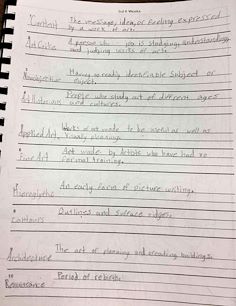 Content The message, idea, or feeling expressed
by a work of art.
Art Critic A person who is studying, understanding
and judging works of art.
Nonobjective Having no readily identifiable subject or
object.
Art Historians People who study art of different ages
and cultures.
Applied Art Works of art made to be useful as well as
visually pleasing.
Art made by Artists who have had no
formal training.
Hieroglyphic An early form of picture writing.
Contours Outlines and surface ridges.
Architecture The art of planning and creating buildings.
10
Renaissance Period of rebirth.